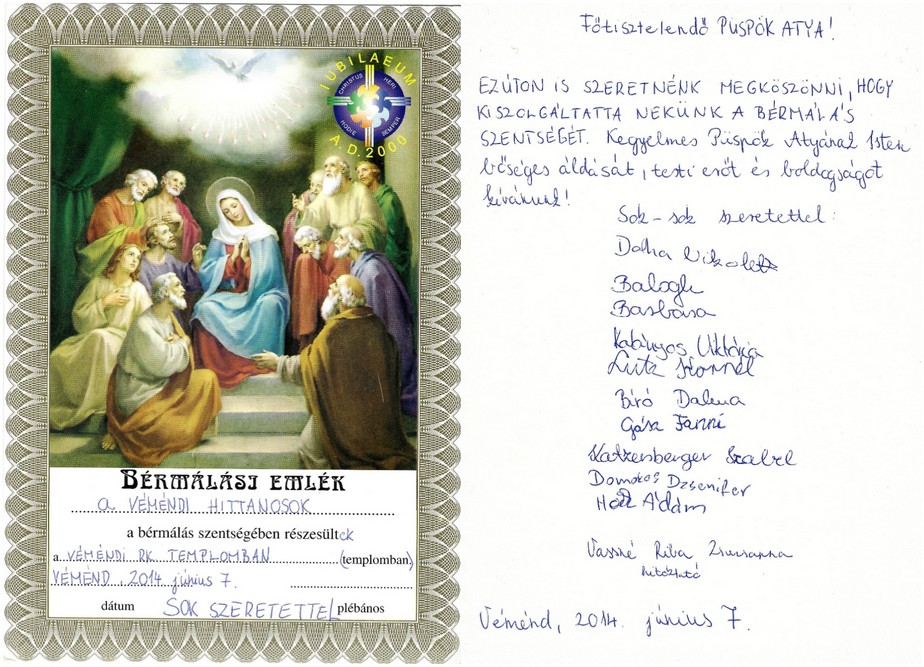 IUBILAEUM
CHRISTUS HERI
HODIE SEMPER
A.D. 2000
BÉRMÁLÁSI EMLÉK
a VÉMÉNDI HITTANOSOK
a bérmálás szentségében részesültek
a VÉMÉNDI RK TEMPLOMBAN (templomban)
VÉMÉND, 2014 június 7.
dátum SOK SZERETETTEL plébános
Főtisztelendő PÜSPÖK ATYA!
EZÚTON IS SZERETNÉNK MEGKÖSZÖNNI, HOGY
KISZOLGÁLTATTA NEKÜNK A BÉRMÁLÁS
SZENTSÉGÉT. Kegyelmes Püspök Atyának Isten
bőséges áldását, testi erőt és boldogságot
kívánunk!
Sok-sok szeretettel:
Nikolett
Balogh
Barbara
Viktória
Lutz Kornél
Bíró
Fanni
Katzenberger
Domokos Dzsenifer
Ádám
Zsuzsanna
hitoktató
Véménd, 2014. június 7.